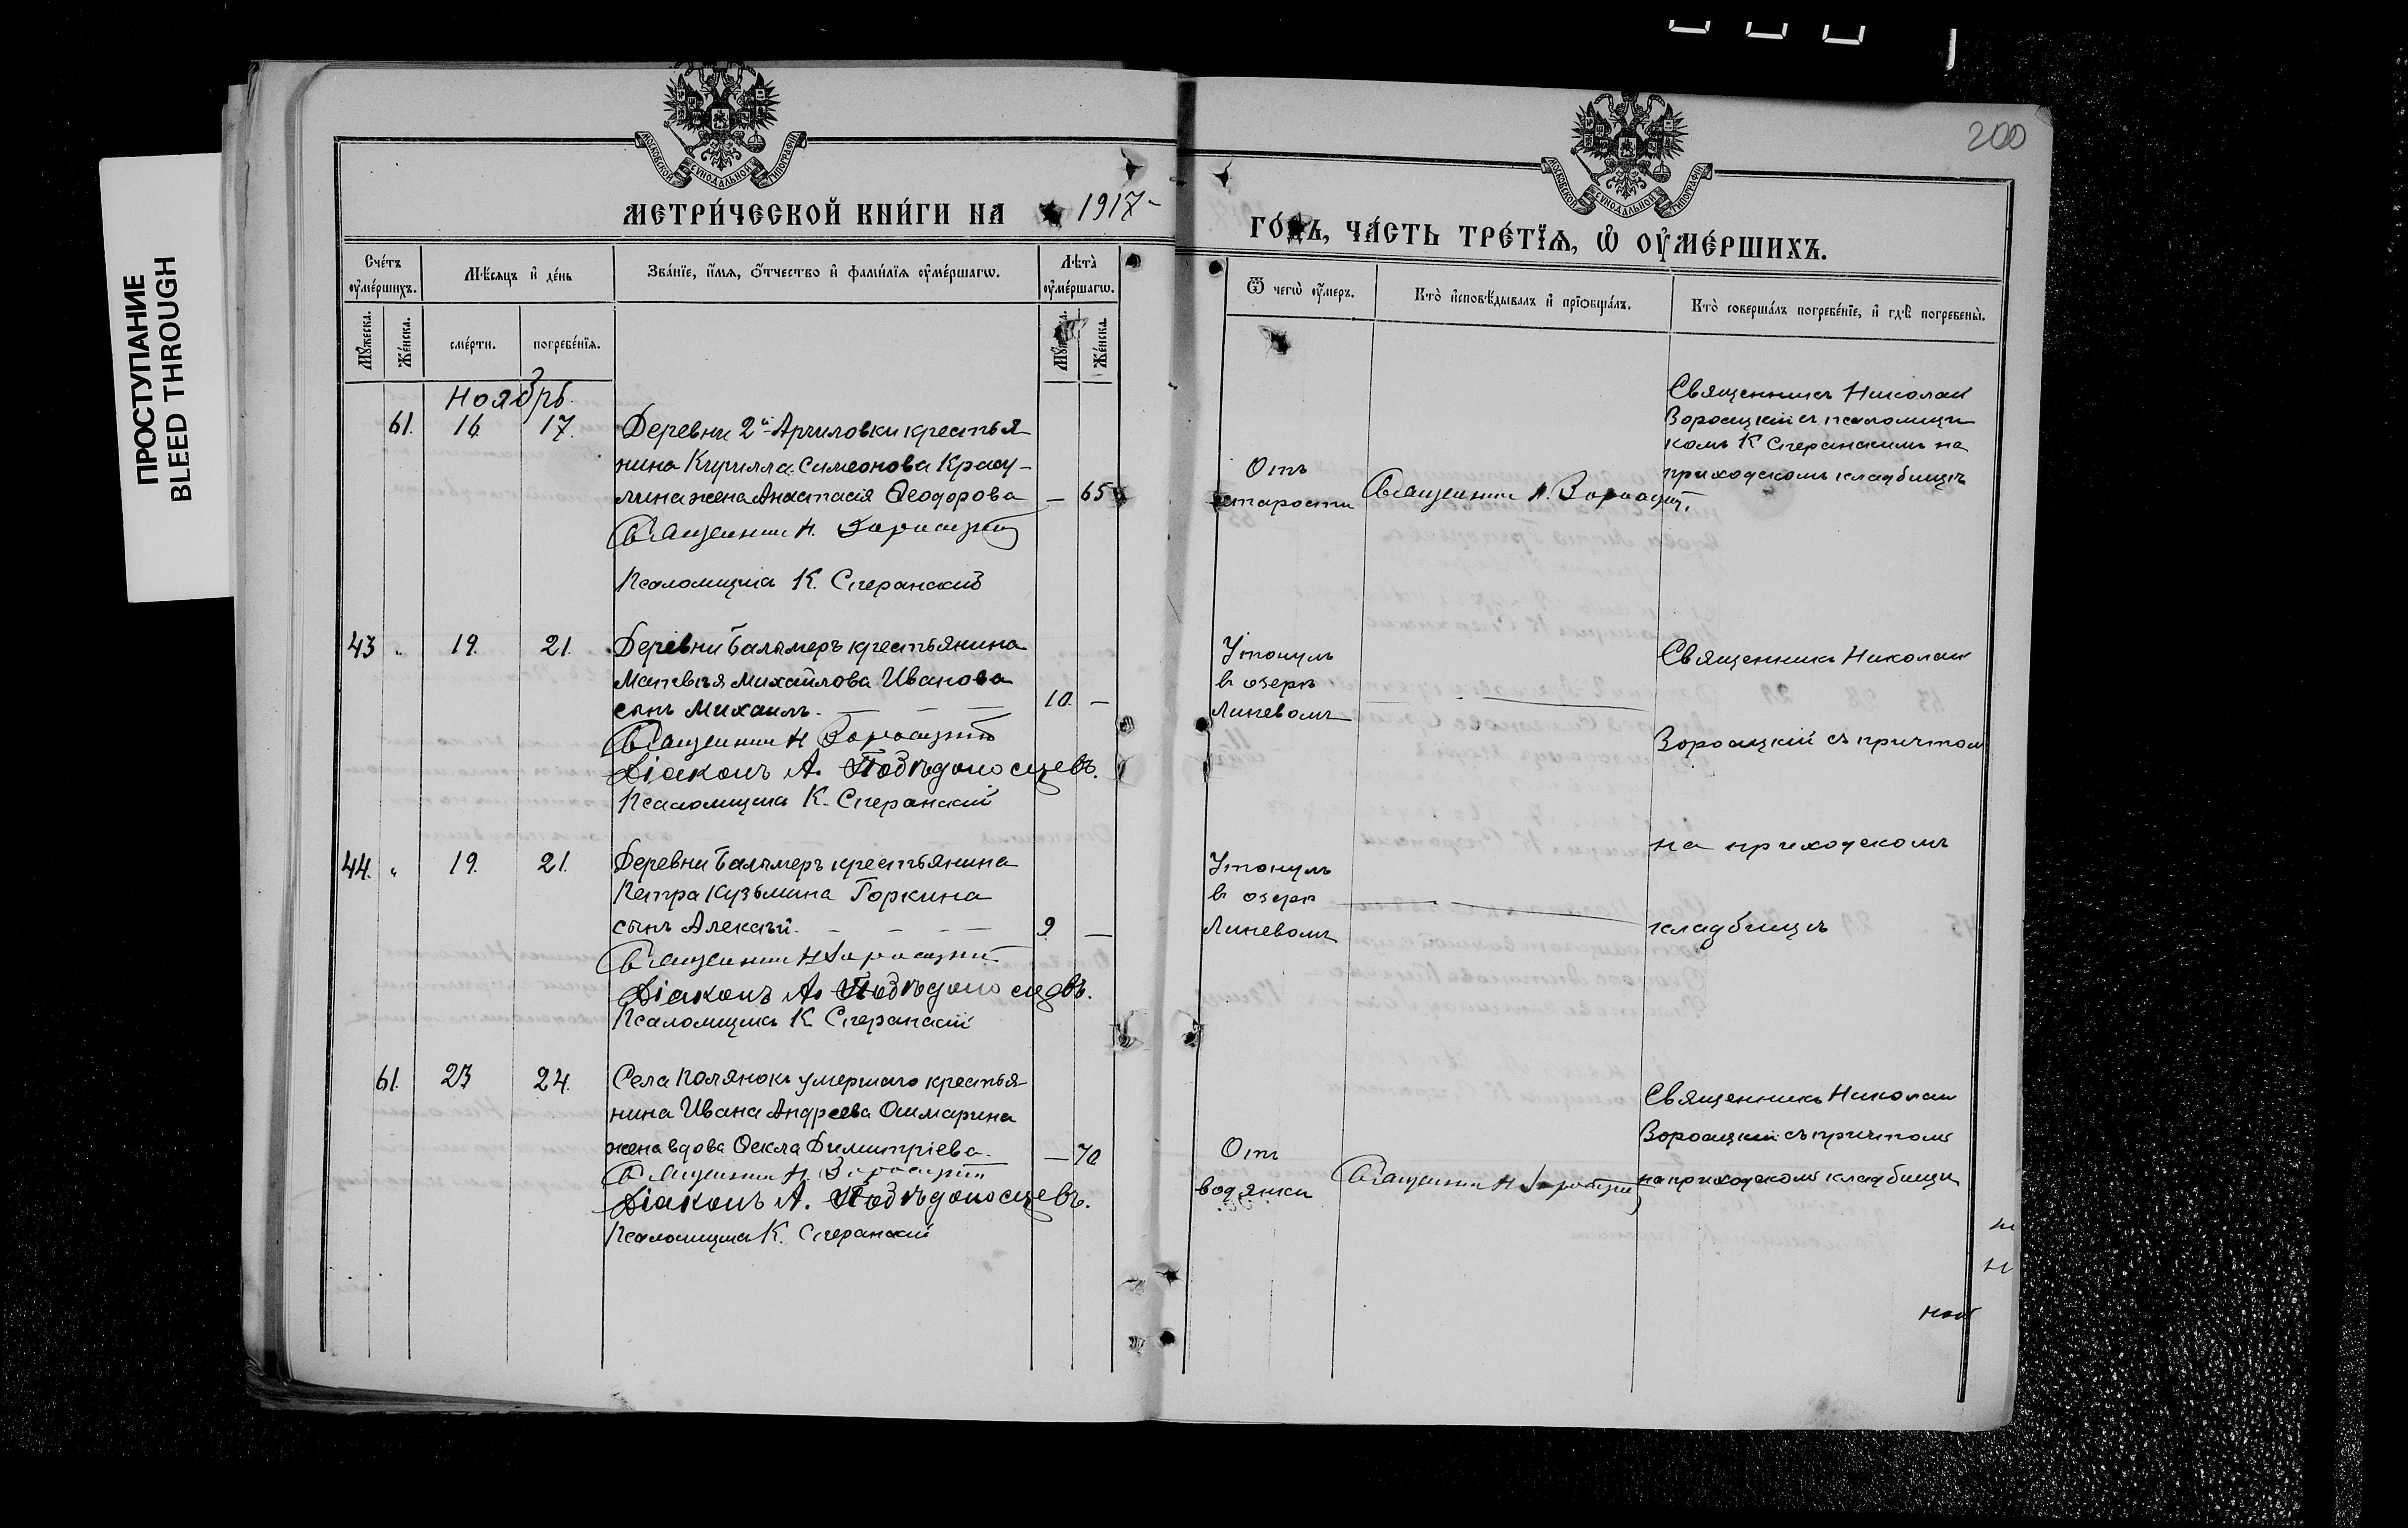 ПРОСТУПАНИЕ
BLEED THROUGH
200
МОСКОВСКОЙ СѴНОДАЛЬНОЙ ТИПОГРАФІИ
МОСКОВСКОЙ СѴНОДАЛЬНОЙ ТИПОГРАФІИ
МЕТРИ́ЧЕСКОЙ КНИ́ГИ НА 1917
ГО́ДЪ, ЧА́СТЬ ТРЕ́ТЇѦ, Ѡ҆ ОУ҆МЕ́РШИХЪ.
Сче́тъ оу҆ме́ршихъ.
Мꙋ́жеска.
Же́нска.
Мѣ́сяцъ и҆ де́нь
сме́рти.
погребе́нїя.
Зва́нїе, и҆́мѧ, ѻ҆́тчество и҆ фами́лїѧ оу҆ме́ршагѡ.
Лѣ́та оу҆ме́ршагѡ.
Мꙋ́жеска.
Же́нска.
Ѿ чегѡ̀ оу҆́меръ.
Кто̀ и҆сповѣ́дывалъ и҆ прїѻбща́лъ.
Кто̀ соверша́лъ погребе́нїе, и҆ гдѣ̀ погребены̀.
Ноябрь
61. 16 17.
Деревни 2й Арчиловки крестья-
нина Кирилла Симеонова Красу-
лина жена Анастасія Ѳеодорова — 65
Священник Н.
Псаломщикъ К. Сперанскій
Отъ
старости
Священник Н.
Священникъ Николай
с псаломщи
комъ К Сперанскимъ на
приходскомъ кладбищѣ
43 „ 19. 21.
Деревни Балымеръ крестьянина
Матвѣя Михайлова Иванова
сынъ Михаилъ. — — — 10. —
Священник Н
Діаконъ А. Побѣдоносцевъ.
Псаломщикъ К. Сперанскій
Утонулъ
въ озерѣ
Линевомъ
Священникъ Николай
съ причтомъ
на приходскомъ
кладбищѣ
44. „ 19. 21.
Деревни Балымеръ крестьянина
Петра Кузьмина Горкина
сынъ Алексѣй. — — — 9 —
Священник Н
Діаконъ А. Побѣдоносцевъ.
Псаломщикъ К Сперанскій
Утонулъ
въ озерѣ
Линевомъ
61. 23 24.
Села Полянокъ умершаго крестья-
нина Ивана Андреева Ошмарина
жена вдова Ѳекла Димитріева. — 70
Священник Н.
Діаконъ А. Побѣдоносцевъ.
Псаломщикъ К. Сперанскій
Отъ
водянки
Священник Н
Священникъ Николай
съ причтомъ
на приходскомъ кладбищѣ